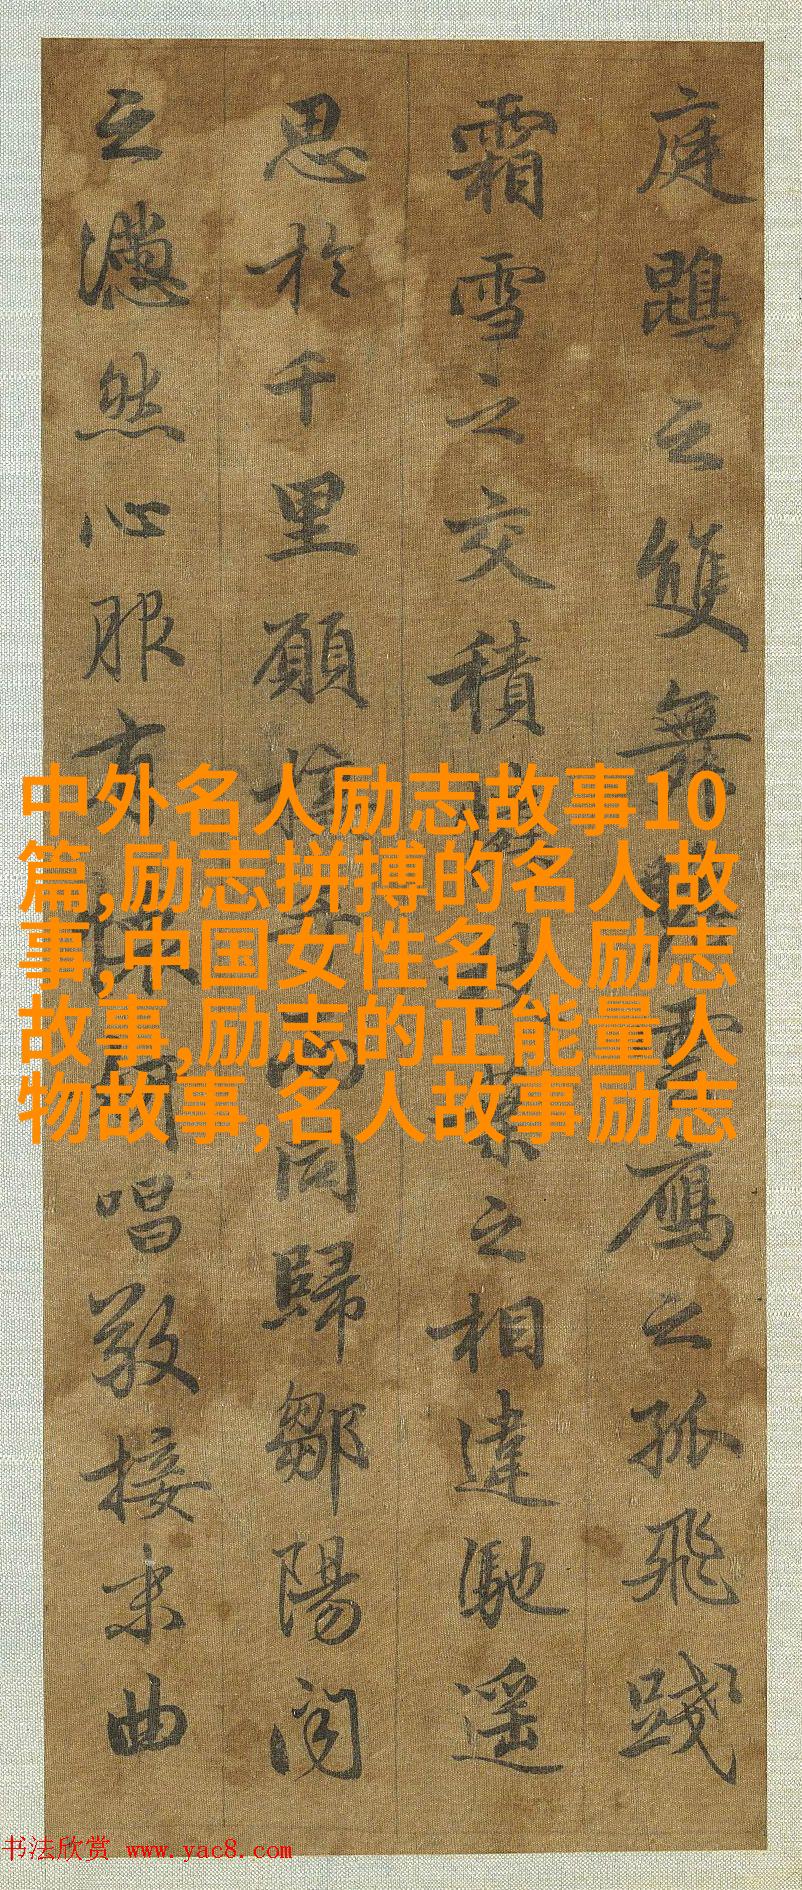 庭鵾之雙舞瞻雲鴈之孤飛踐
霜雪之交積枝葉之相違馳遥
思於千里願接手而同歸鄒陽聞
之懣然心服有懷妍唱敬接末曲
中外名人励志故事10
篇,励志拼搏的名人故
事,中国女性名人励志
故事,励志的正能量人
物故事,名人故事励志
书法欣赏 www.yac8.com